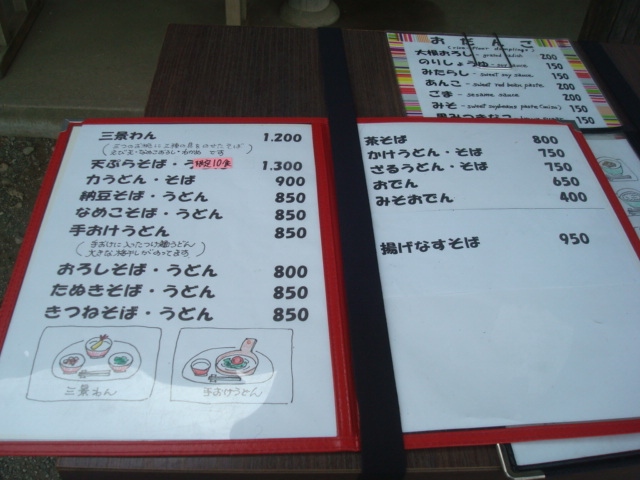 三景わん 1.200
天ぷらそば・う 限定10食 1.300
力うどん・そば 900
納豆そば・うどん 850
なめこそば・うどん 850
手おけうどん 850
(手おけに入ったつけ麺うどん
大きな梅干しがのってます)
おろしそば・うどん 800
たぬきそば・うどん 850
きつねそば・うどん 850
三景わん
手おけうどん
茶そば 800
かけうどん・そば 750
ざるうどん・そば 750
おでん 650
みそおでん 400
揚げなすそば 950
おだんご
(rice flour dumplings)
大根おろし - grated radish 200
のりしょうゆ 150
みたらし - sweet soy sauce 150
あんこ - sweet red bean paste 200
ごま - sesame sauce 200
みそ - sweet soybeans paste (miso) 200
黒みつきなこ 150